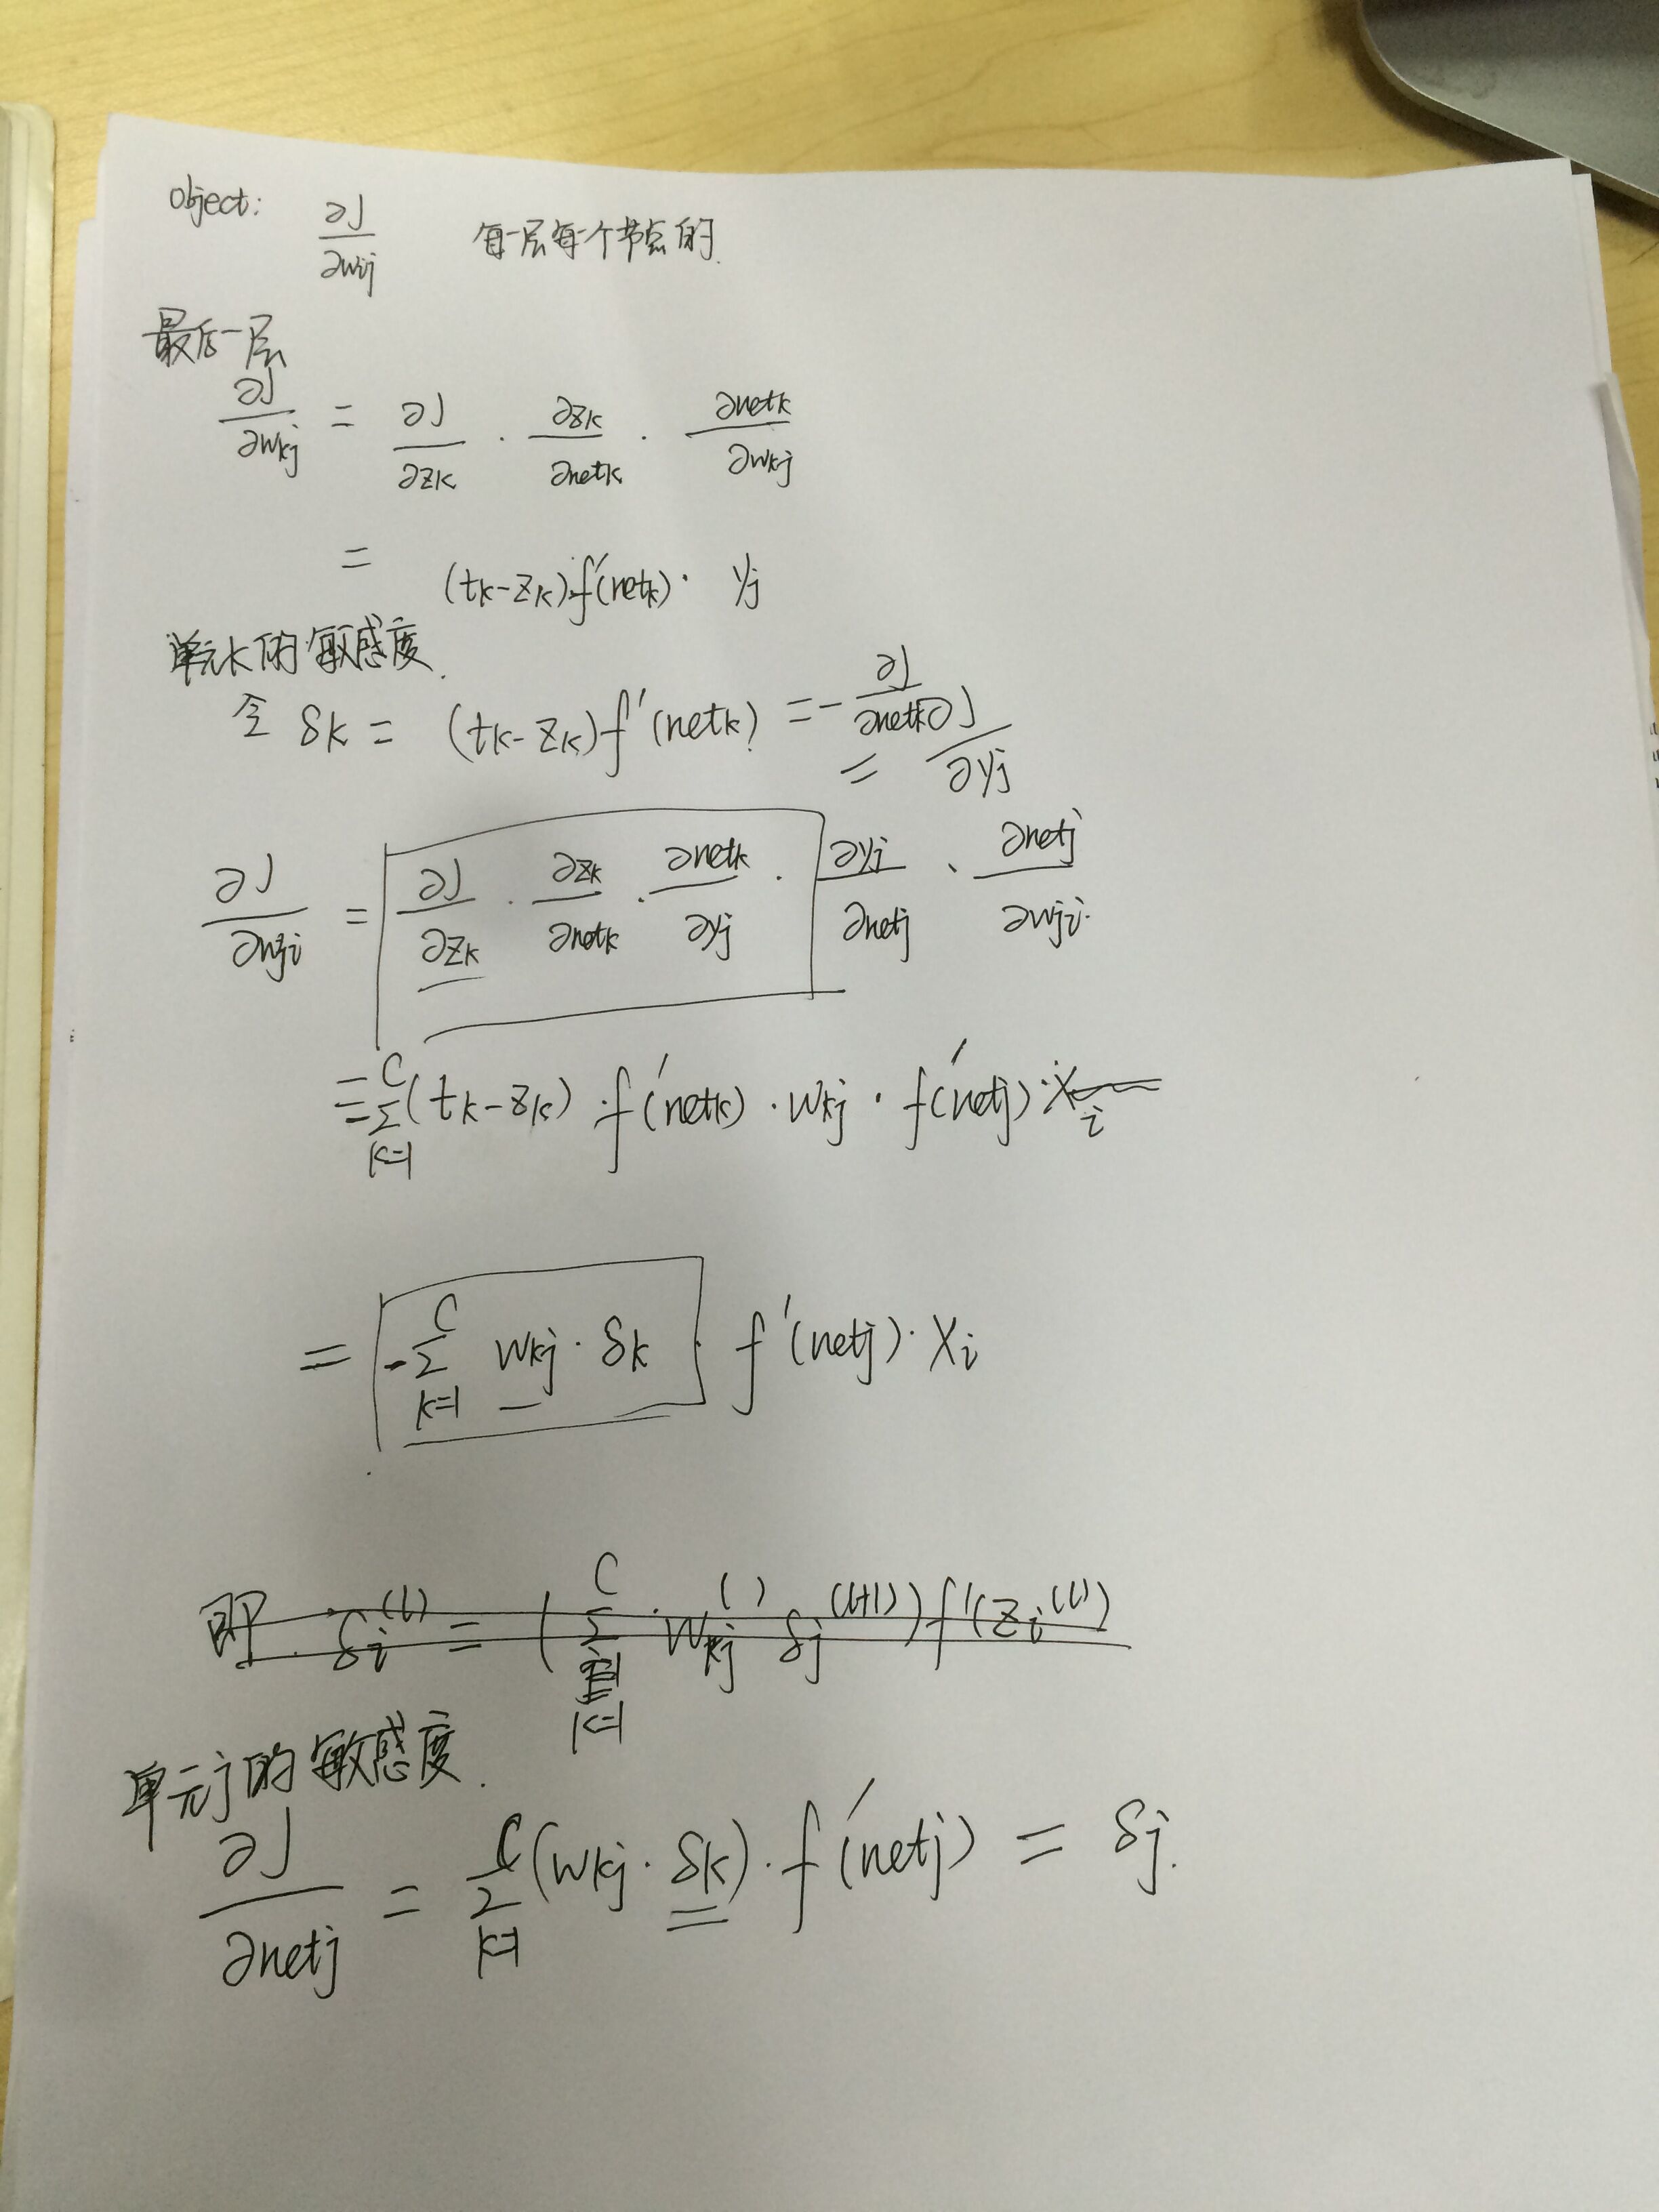 object: ∂J/∂wij 每一层每个节点的.
最后一层
∂J/∂wkj = ∂J/∂zk · ∂zk/∂netk · ∂netk/∂wkj
= (tk-zk)f'(netk)· yj
单元k的敏感度.
令 δk = (tk-zk)f'(netk) = -∂J/∂netk
= ∂J/∂yj
∂J/∂wji = ∂J/∂zk · ∂zk/∂netk · ∂netk/∂yj · ∂yj/∂netj · ∂netj/∂wji.
= Σ_{k=1}^{C} (tk-zk) · f'(netk) · wkj · f'(netj) · xi
= -Σ_{k=1}^{C} wkj · δk · f'(netj) · xi
即. δi^(l) = ( Σ_{k=1}^{C} · wkj^( ) δj^(l+1) ) f'(zi^(l))
单元j的敏感度.
∂J/∂netj = Σ_{k=1}^{C} (wkj · δk) · f'(netj) = δj.